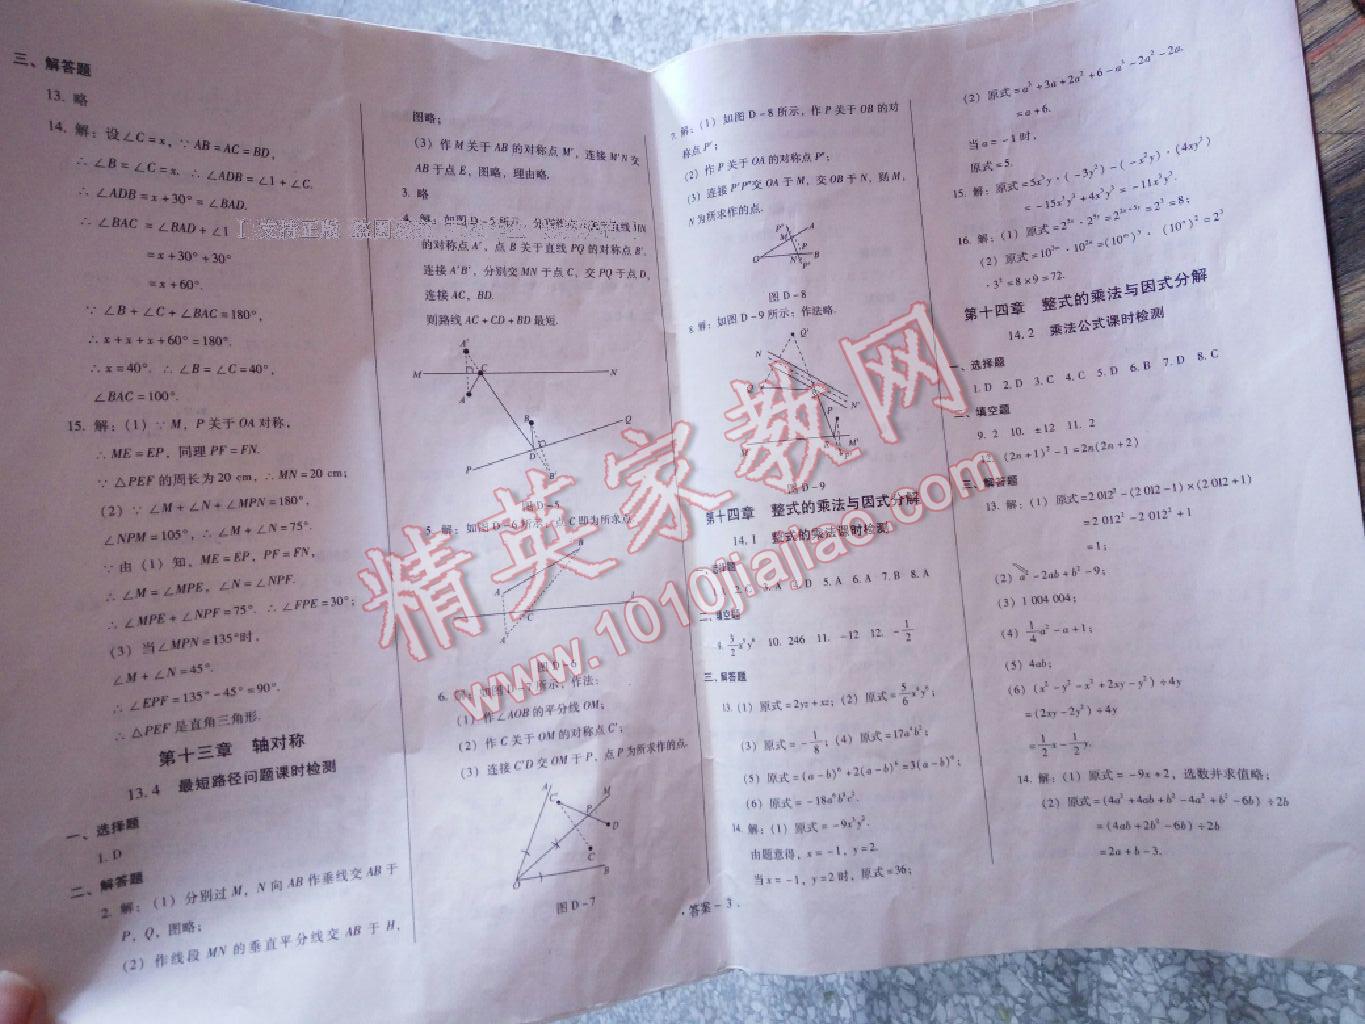 三、解答题
13. 略
14. 解：设∠C = x，∵ AB = AC = BD，
∴ ∠B = ∠C = x. ∴ ∠ADB = ∠1 + ∠C.
∴ ∠ADB = x + 30° = ∠BAD.
∴ ∠BAC = ∠BAD + ∠1
= x + 30° + 30°
= x + 60°.
∵ ∠B + ∠C + ∠BAC = 180°，
∴ x + x + x + 60° = 180°.
∴ x = 40°. ∴ ∠B = ∠C = 40°，
∠BAC = 100°.
15. 解：(1) ∵ M，P 关于 OA 对称，
∴ ME = EP. 同理 PF = FN.
∵ △PEF 的周长为 20 cm，∴ MN = 20 cm；
(2) ∵ ∠M + ∠N + ∠MPN = 180°，
∠NPM = 105°，∴ ∠M + ∠N = 75°.
∵ 由 (1) 知，ME = EP，PF = FN，
∴ ∠M = ∠MPE，∠N = ∠NPF.
∴ ∠MPE + ∠NPF = 75°. ∴ ∠FPE = 30°；
(3) 当∠MPN = 135°时，
∠M + ∠N = 45°.
∴ ∠EPF = 135° - 45° = 90°.
∴ △PEF 是直角三角形.
第十三章 轴对称
13.4 最短路径问题课时检测
一、选择题
1. D
二、解答题
2. 解：(1) 分别过 M，N 向 AB 作垂线交 AB 于
P，Q，图略；
(2) 作线段 MN 的垂直平分线交 AB 于 H，
图略；
(3) 作 M 关于 AB 的对称点 M'，连接 M'N 交
AB 于点 E，图略，理由略.
3. 略
4. 解：如图 D-5 所示，分别作点 A 关于直线 MN
的对称点 A'，点 B 关于直线 PQ 的对称点 B'.
连接 A'B'，分别交 MN 于点 C，交 PQ 于点 D，
连接 AC，BD.
则路线 AC + CD + BD 最短.
A'
M D C N
A
B Q
P D C
B'
图 D-5
5. 解：如图 D-6 所示，点 C 即为所求点.
B
A
C l
A'
图 D-6
6. 解：如图 D-7 所示，作法：
(1) 作∠AOB 的平分线 OM；
(2) 作 C 关于 OM 的对称点 C'；
(3) 连接 C'D 交 OM 于 P，点 P 为所求作的点.
A M
C' P
D
C
O B
图 D-7
7. 解：(1) 如图 D-8 所示，作 P 关于 OB 的对
称点 P'；
(2) 作 P 关于 OA 的对称点 P''；
(3) 连接 P'P''交 OA 于 M，交 OB 于 N，则 M，
N 为所求作的点.
P'' A
M P
O N B
P'
图 D-8
8. 解：如图 D-9 所示：作法略.
Q'
N
Q
N'
P
M M'
P'
图 D-9
第十四章 整式的乘法与因式分解
14.1 整式的乘法课时检测
一、选择题
2. C 3. A 4. D 5. A 6. A 7. B 8. A
二、填空题
10. 246 11. -12 12. -1/2
三、解答题
13. (1) 原式 = 2yz + xz；(2) 原式 =
(3) 原式 = -1/8；(4) 原式 = 17a⁴b²；
(5) 原式 = (a-b)⁶ + 2(a-b)⁶ = 3(a-b)⁶；
(6) 原式 = -18a⁶b³c².
14. 解：(1) 原式 = -9x³y².
由题意得，x = -1，y = 2.
当 x = -1，y = 2 时，原式 = 36；
(2) 原式 = a³ + 3a + 2a² + 6 - a³ - 2a² - 2a.
= a + 6.
当 a = -1 时，
原式 = 5.
15. 解：原式 = 5x³y · (-3y²) - (-x²y) · (4xy²)
= -15x³y³ + 4x³y³ = -11x³y³.
16. 解：(1) 原式 = 2³ = 8；
(2) 原式 = 10³ᵐ · 10²ⁿ = (10ᵐ)³ · (10ⁿ)² = 2³
· 3² = 8 × 9 = 72.
第十四章 整式的乘法与因式分解
14.2 乘法公式课时检测
一、选择题
1. D 2. D 3. C 4. C 5. D 6. B 7. D 8. C
二、填空题
9. 2 10. ±12 11. 2
12. (2n+1)² - 1 = 2n(2n+2)
三、解答题
13. 解：(1) 原式 = 2 012² - (2 012 - 1) × (2 012 + 1)
= 2 012² - 2 012² + 1
= 1；
(2) a² - 2ab + b² - 9；
(3) 1 004 004；
(4) 1/4 a² - a + 1；
(5) 4ab；
(6) (x² - y² - x² + 2xy - y²) ÷ 4y
= (2xy - 2y²) ÷ 4y
= 1/2 x - 1/2 y.
14. 解：(1) 原式 = -9x + 2，选数并求值略；
(2) 原式 = (4a² + 4ab + b² - 4a² + b² - 6b) ÷ 2b
= (4ab + 2b² - 6b) ÷ 2b
= 2a + b - 3.
· 答案 - 3 ·
精英家教网
www.1010jiajiao.com